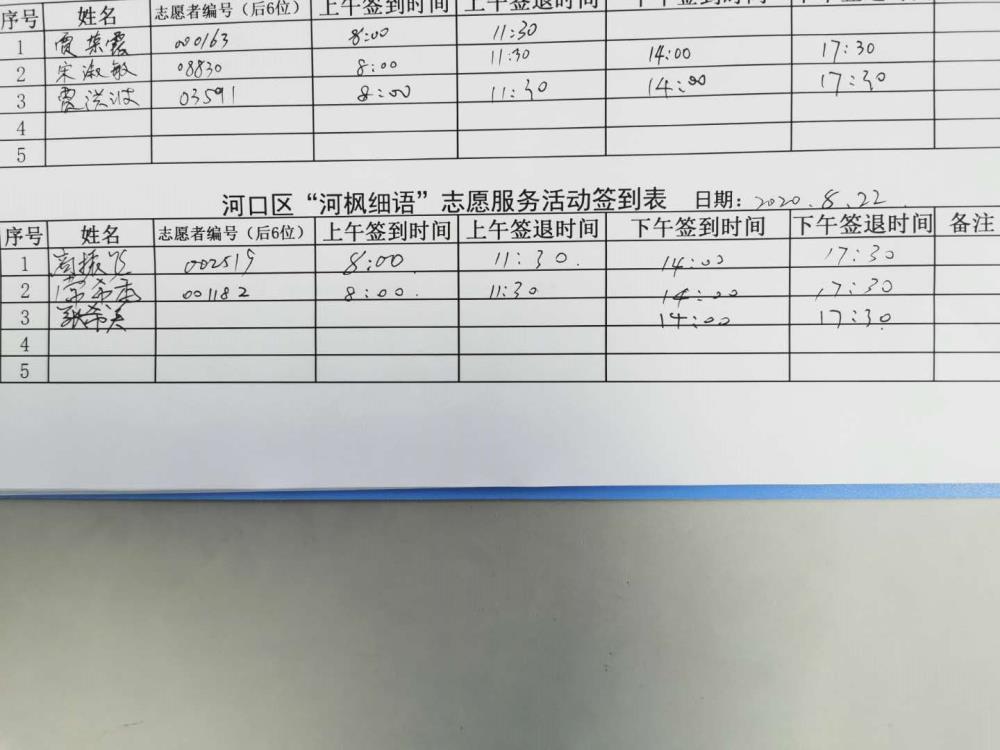 序号 姓名 志愿者编号（后6位） 上午签到时间 上午签退时间 下午签到时间
1 000163 8:00 11:30
2 宋淑敏 08830 8:00 11:30 14:00 17:30
3 03591 8:00 11:30 14:00 17:30
4
5
河口区“河枫细语”志愿服务活动签到表 日期：2020.8.22
序号 姓名 志愿者编号（后6位） 上午签到时间 上午签退时间 下午签到时间 下午签退时间 备注
1 高振飞 002519 8:00 11:30. 14:00 17:30
2 001182 8:00. 11:30 14:00 17:30
3 14:00 17:30
4
5